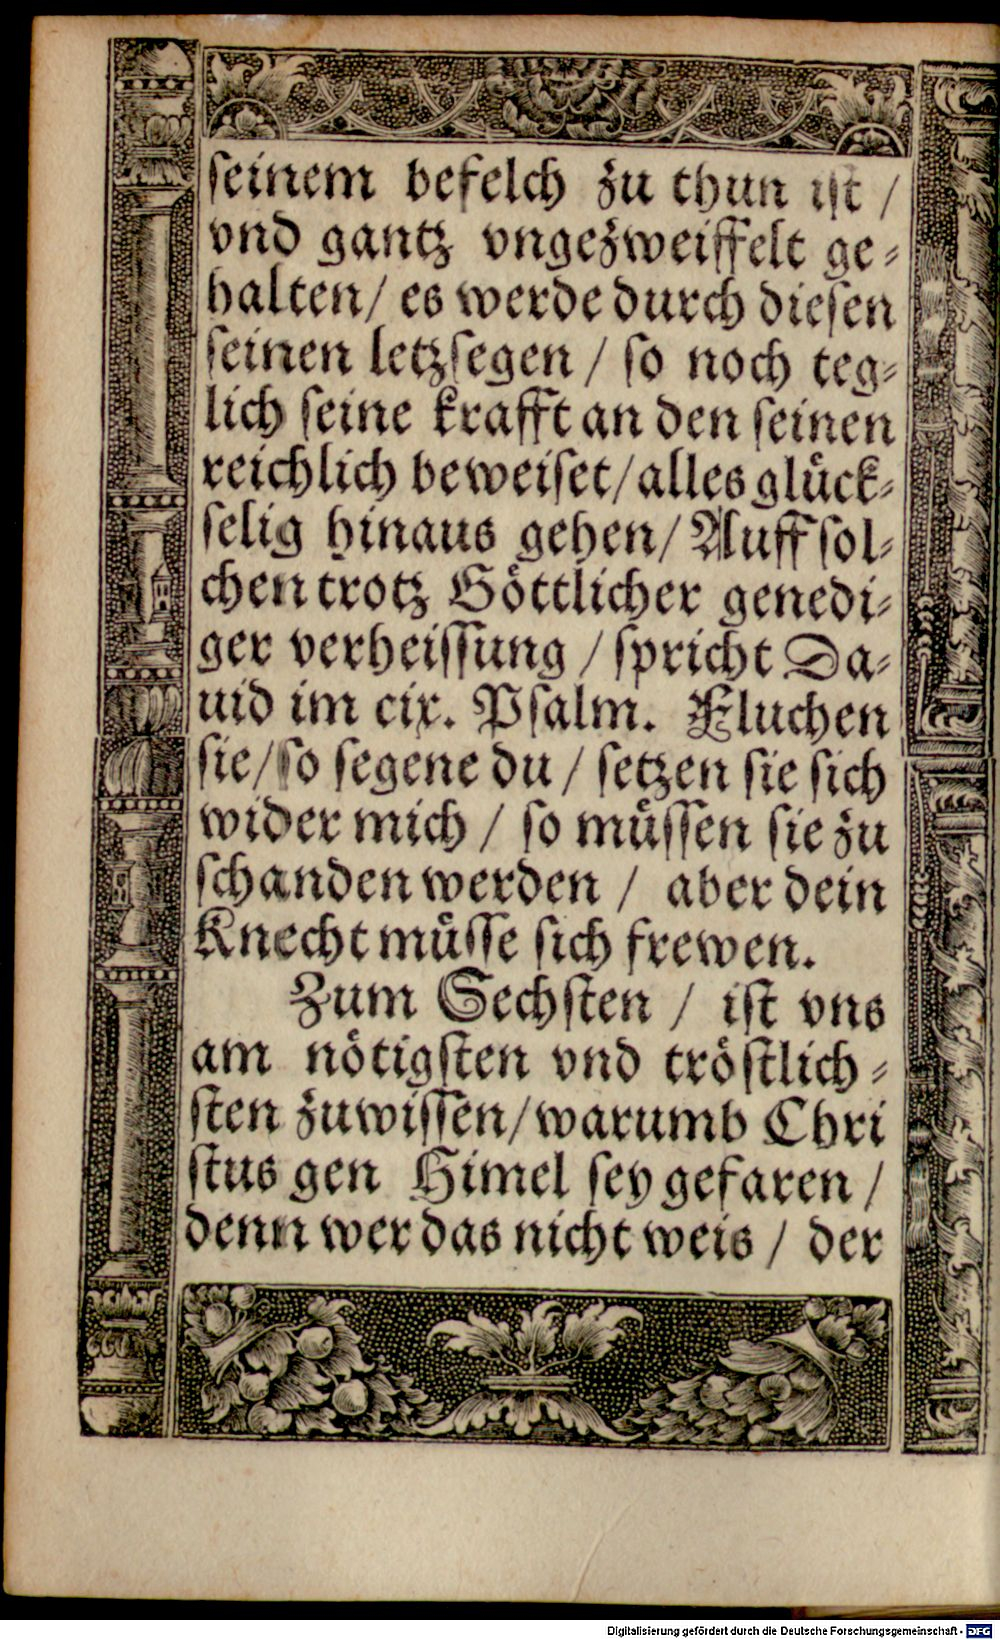 seinem befelch zu thun ist /
vnd gantz vngezweiffelt ge⸗
halten / es werde durch diesen
seinen letzsegen / so noch teg⸗
lich seine krafft an den seinen
reichlich beweiset / alles glück⸗
selig hinaus gehen / Auff sol⸗
chen trotz Göttlicher genedi⸗
ger verheissung / spricht Da⸗
uid im cix. Psalm. Fluchen
sie / so segene du / setzen sie sich
wider mich / so müssen sie zu
schanden werden / aber dein
Knecht müsse sich frewen.
Zum Sechsten / ist vns
am nötigsten vnd tröstlich⸗
sten zuwissen / warumb Chri
stus gen Himel sey gefaren /
denn wer das nicht weis / der
Digitalisierung gefördert durch die Deutsche Forschungsgemeinschaft - DFG